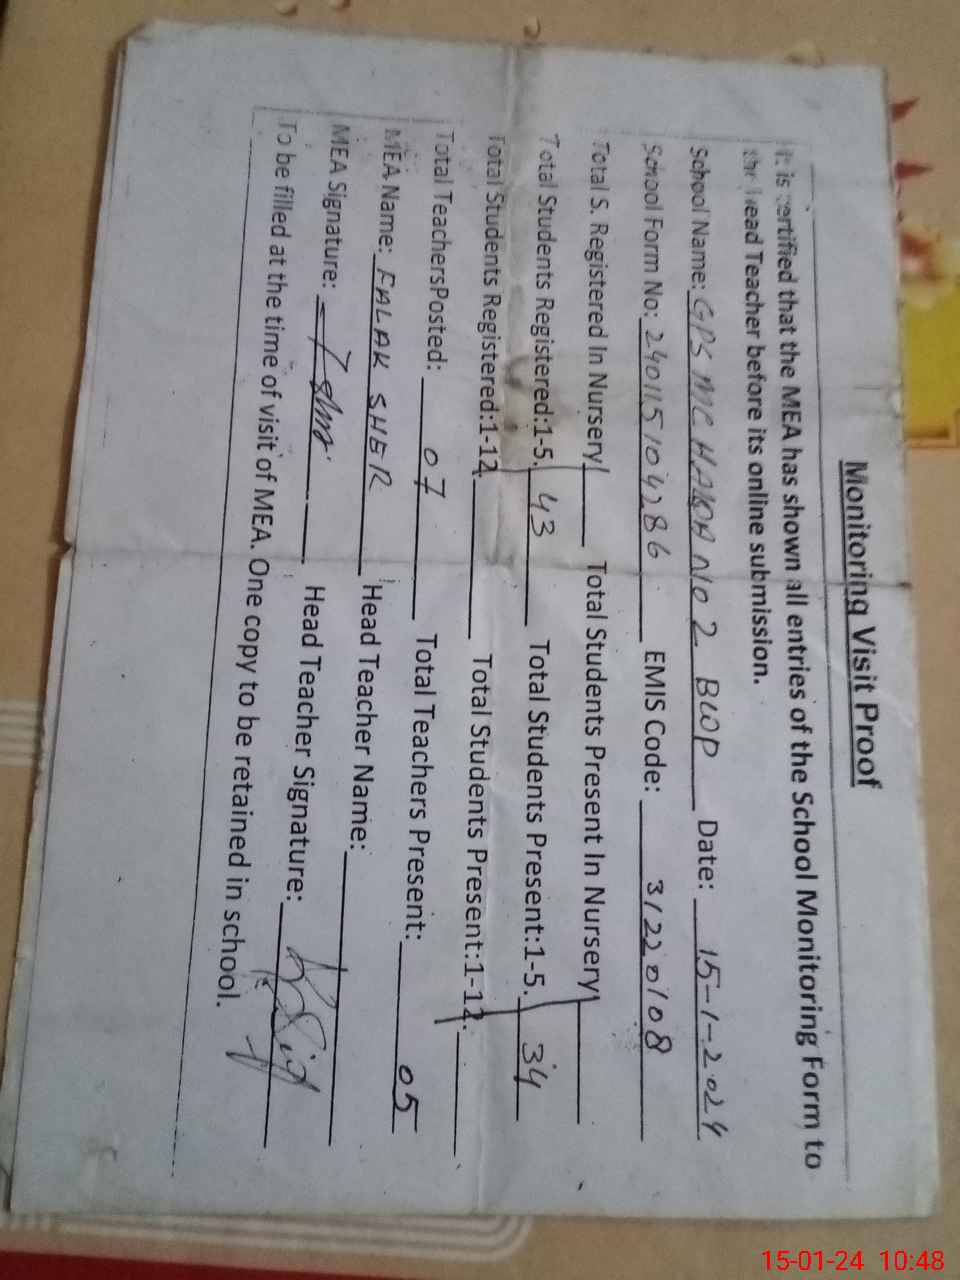 Monitoring Visit Proof
It is certified that the MEA has shown all entries of the School Monitoring Form to
the Head Teacher before its online submission.
School Name: GPS MC HAIDA NO 2 BWP Date: 15-1-2024
School Form No: 240115104286 EMIS Code: 31220108
Total S. Registered In Nursery Total Students Present In Nursery
Total Students Registered:1-5. 43 Total Students Present:1-5. 34
Total Students Registered:1-12. Total Students Present:1-12.
Total TeachersPosted: 07 Total Teachers Present: 05
MEA Name: FALAK SHER Head Teacher Name:
MEA Signature: Head Teacher Signature:
To be filled at the time of visit of MEA. One copy to be retained in school.
15-01-24 10:48